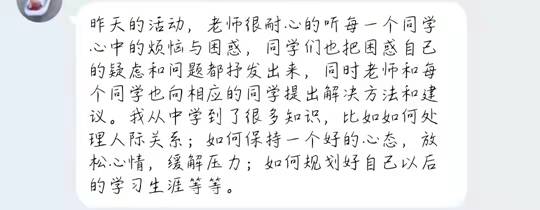 昨天的活动，老师很耐心的听每一个同学
心中的烦恼与困惑，同学们也把困惑自己
的疑虑和问题都抒发出来，同时老师和每
个同学也向相应的同学提出解决方法和建
议。我从中学到了很多知识，比如如何处
理人际关系；如何保持一个好的心态，放
松心情，缓解压力；如何规划好自己以后
的学习生涯等等。